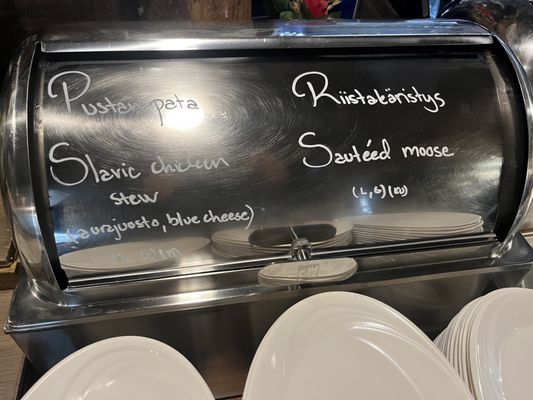 Pustan pata
Slavic chicken
stew
(aurajuosto, blue cheese)
Riistakäristys
Sautéed moose